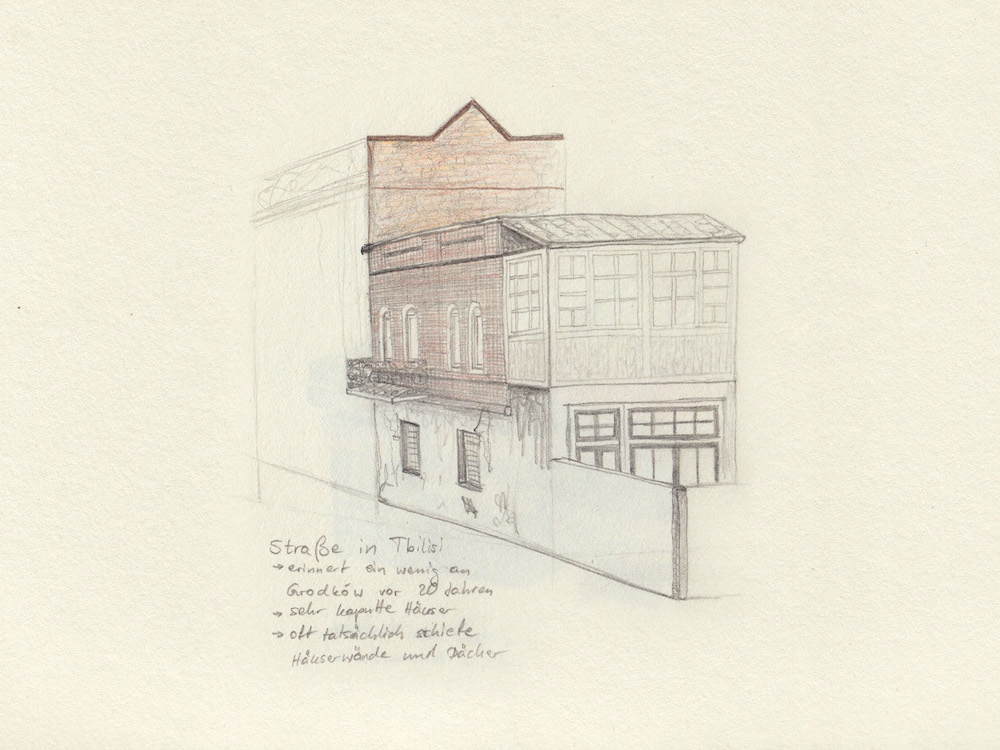 Straße in Tbilisi
→ erinnert ein wenig an
Grodków vor 20 Jahren
→ sehr kaputte Häuser
→ oft tatsächlich schiefe
Häuserwände und Dächer